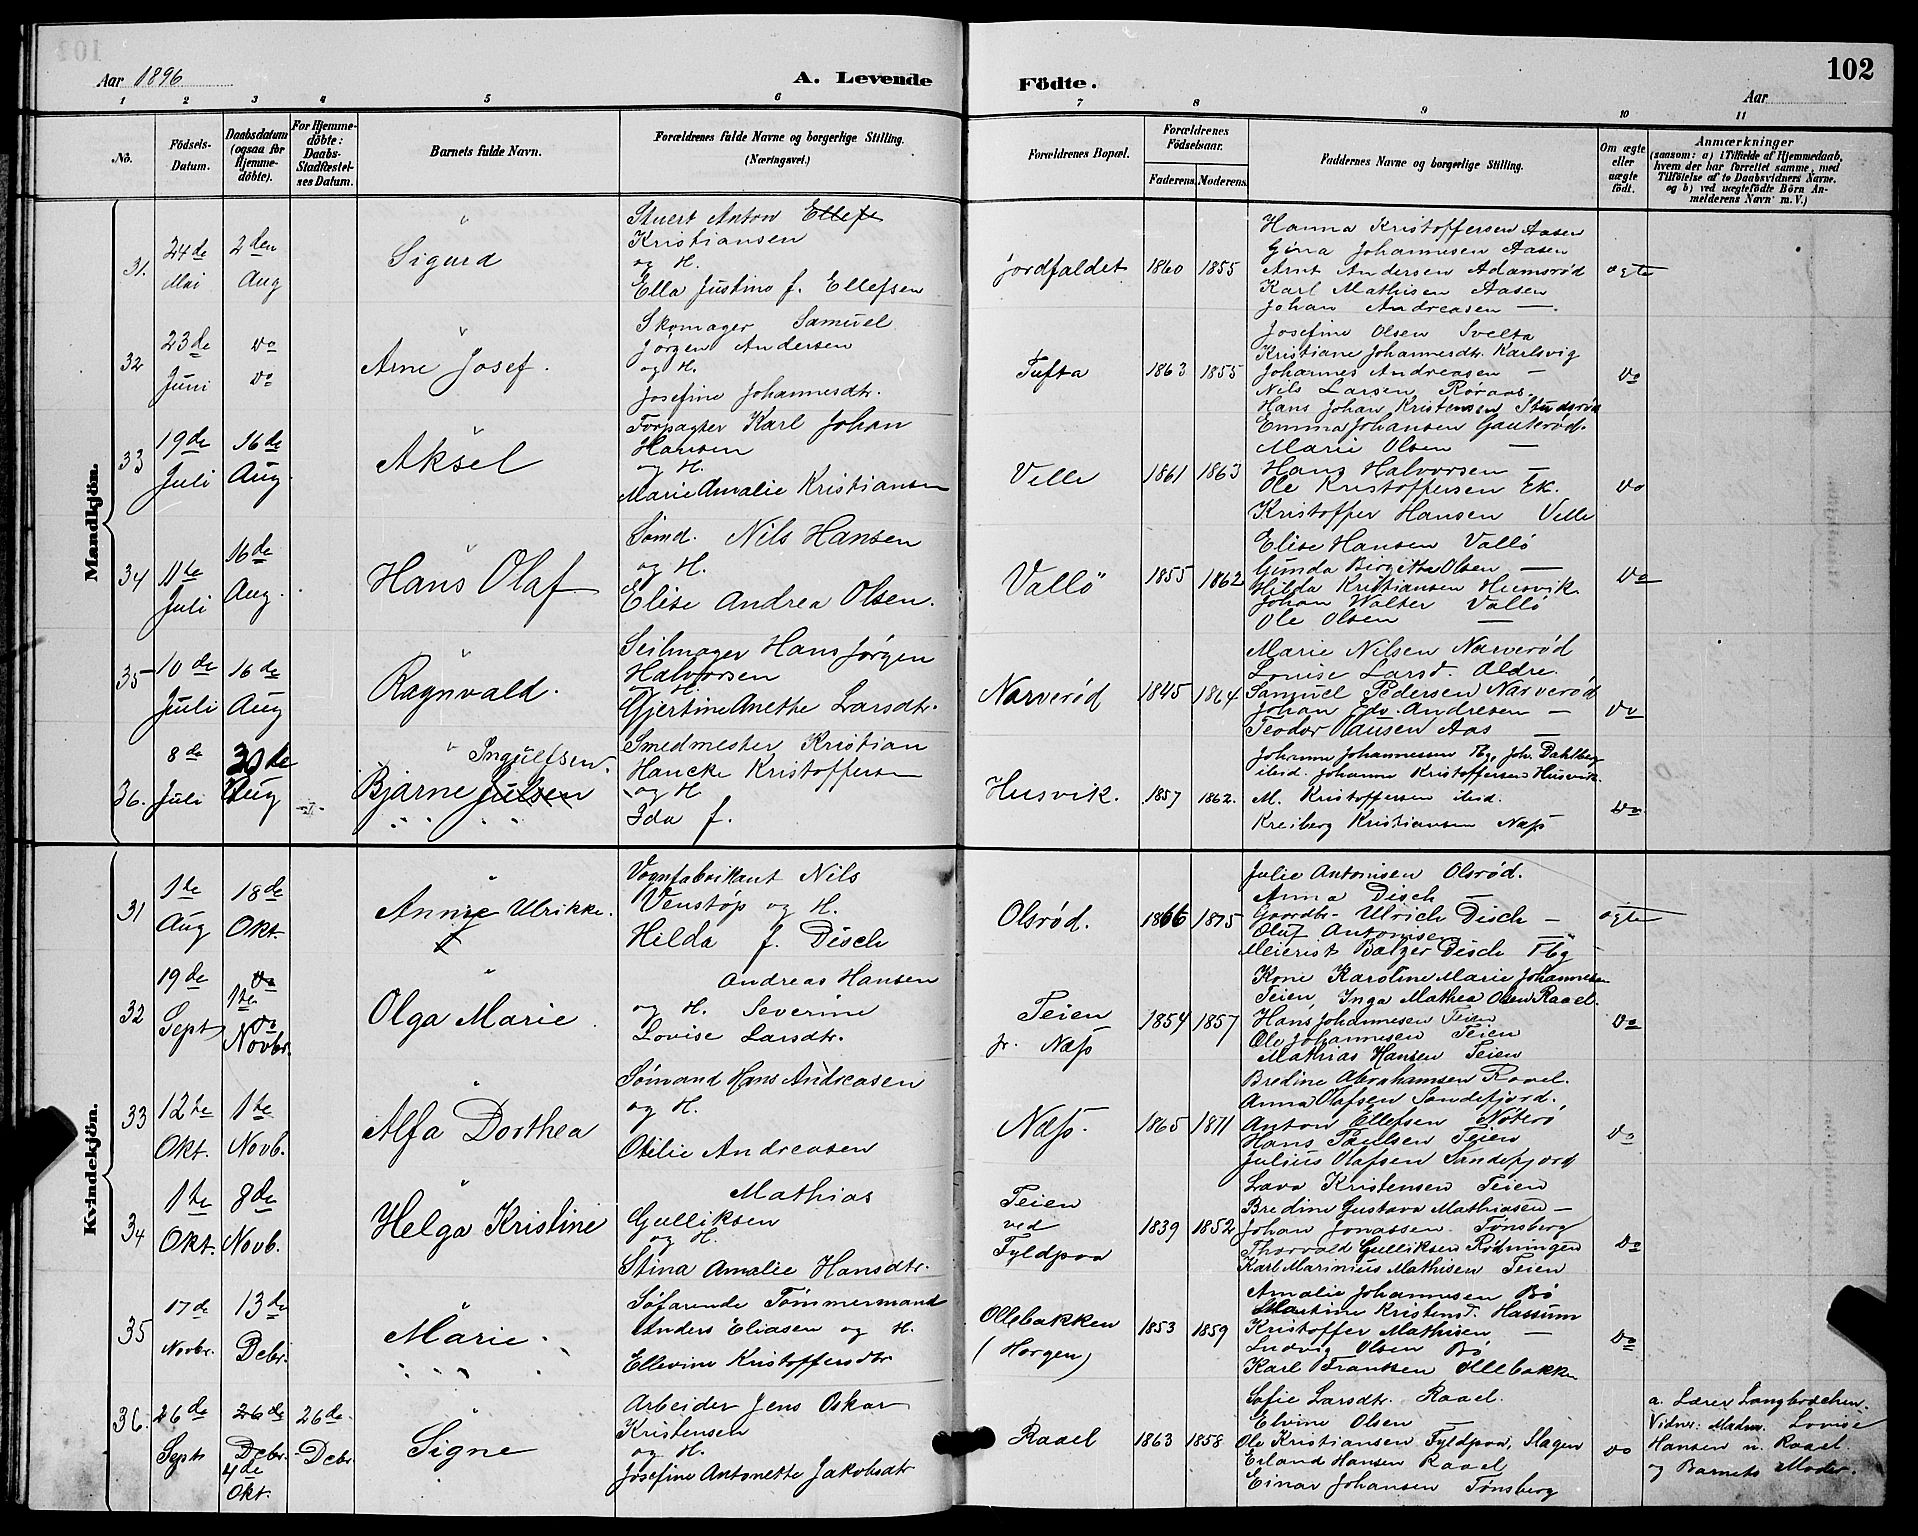 102
Aar 1896
A. Levende Födte.
Aar
1 2 3 4 5 6 7 8 9 10 11
No.
Födsels-Datum.
Daabsdatum (ogsaa for Hjemme-döbte).
For Hjemme-döbte: Daabs-Stadfæstel-ses Datum.
Barnets fulde Navn.
Forældrenes fulde Navne og borgerlige Stilling. (Næringsvei.)
Forældrenes Bopæl.
Forældrenes Födselsaar.
Faderens. Moderens.
Faddernes Navne og borgerlige Stilling.
Om ægte eller uægte födt.
Anmærkninger
(saasom: a) i Tilfælde af Hjemmedaab,
hvem der har forrettet samme, med
Tilföielse af to Daabsvidners Navne,
og b) ved uægtefödte Börn An-
melderens Navn m. V.)
Mandkjön.
31. 24de Mai
2den Aug
Sigurd
Stuert Anton Ellefs
Kristiansen
og H.
Ella Justine f. Ellefsen
Jordfaldet 1860 1855
Hanna Kristoffersen Aasen
Gina Johannesen Aasen
Arnt Andersen Adamsrød
Karl Mathisen Aasen
Johan Andreasen —
ægte
32 23de Juni
do do
Arne Josef.
Skomager Samuel
Jørgen Andersen
og H.
Josefine Johannesdtr.
Tufta 1863 1855
Josefine Olsen Svelta
Kristiane Johannesdtr. Karlsvig
Johannes Andreasen —
Nils Larsen Røraas
Hans Johan Kristensen Studsrød
do
33 19de Juli
16de Aug.
Aksel
Forpagter Karl Johan
Hansen
og H.
Marie Amalie Kristiansen
Velle 1861 1863
Emma Johansen Gauterød.
Marie Olsen —
Hans Halvorsen —
Ole Kristoffersen Ek.
Kristoffer Hansen Velle
do
34 11te Juli
16de Aug.
Hans Olaf
Sømd. Nils Hansen
og H.
Elise Andrea Olsen.
Vallö 1855 1862
Elise Hansen Vallö
Gunda Birgitte Olsen —
Hilda Kristiansen Husvik
Johan Walter Vallö
Ole Olsen —
do
35 10de Juli
16de Aug
Ragnvald.
Seilmager Hans Jørgen
Halvorsen
H.
Gjertine Anethe Larsdtr.
Narverød 1845 1864
Marie Nilsen Narverød
Louise Larsd. Oldre.
Samuel Pedersen Narverød
Johan Edv. Andresen —
Teodor Hansen Aas —
do
36. 8de Juli
30de Aug
Ingulfsen.
Bjarne Julsen
Smedmester Kristian
Hancke Kristoffersen
og H
Ida f.
Husvik. 1857 1862.
Johanne Johannessen Tbg, Joh. Dahlberg
ibid. Johanne Kristoffersen Husvik.
M. Kristoffersen ibid.
Kreiberg Kristiansen Næss
do
Kvindekjön.
31 1te Aug
18de Okt.
Annie Ulrikke.
Vognfabrikant Nils
Venstöp og H.
Hilda f. Disch
Olsrød. 1866 1875
Julie Antonisen Olsrød.
Anna Disch —
Gaardbr. Ulrich Disch —
Oluf Antonisen —
Meierist Balzer Disch Tbg
ægte
32 19de Sept
do 1te do Novbr.
Olga Marie
Andreas Hansen
og H. Severine
Lovise Larsdtr.
Teien
pr. Næss
1854 1857
Kone Karoline Marie Johannesen
Teien, Inga Mathea Olsen Raael.
Hans Johannesen Teien
Ole Johannesen Teien
Mathias Hansen Teien
do
33 12te Okt.
1te Novb.
Alfa Dorthea
Sømand Hans Andreasen
og H.
Otilie Andreasen
Næss. 1865 1871
Bredine Abrahamsen Raael.
Anna Olafsen Sandefjord.
Anton Ellefsen Nöterö
Hans Paulsen Teien
Julius Olafsen Sandefjord
do
34 1te Okt.
8de Novb.
Helga Kristine
Mathias
Gulliksen
og H.
Stina Amalie Hansdtr.
Teien
ved
Fyldpaa
1839 1852
Lava Kristensen Teien
Bredine Gustava Mathiasen —
Johan Jonassen. Tønsberg
Thorvald Gulliksen Rødningen
Karl Marinius Mathisen Teien
do
35 17de Novbr.
13de Debr.
Marie
Søfarende Tømmermand
Anders Eliasen og H.
Ellevine Kristoffersdtr
Ollebakken
(Horgen)
1853 1859
Amalie Johannesen Bö
Martine Kristensd. Hassum
Kristoffer Mathisen —
Ludvig Olsen Bö
Karl Frantsen Ollebakk
do
36. 26de Sept
26de Debr. 4de Okt.
26de Debr
Signe
Arbeider Jens Oskar
Kristensen
og H.
Josefine Antonette Jakobsdtr
Raael 1863 1858
Sofie Larsdtr. Raael.
Elvine Olsen —
Ole Kristiansen Fyldpaa, Slagen
Erland Hansen Raael
Einar Johansen Tønsberg
do
a. Lærer Langbrodehen.
Vidner: Madm. Lovise
Hansen n. Raael.
og Barnets Moder.